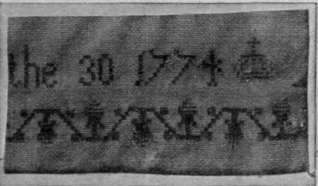 the 30 1774